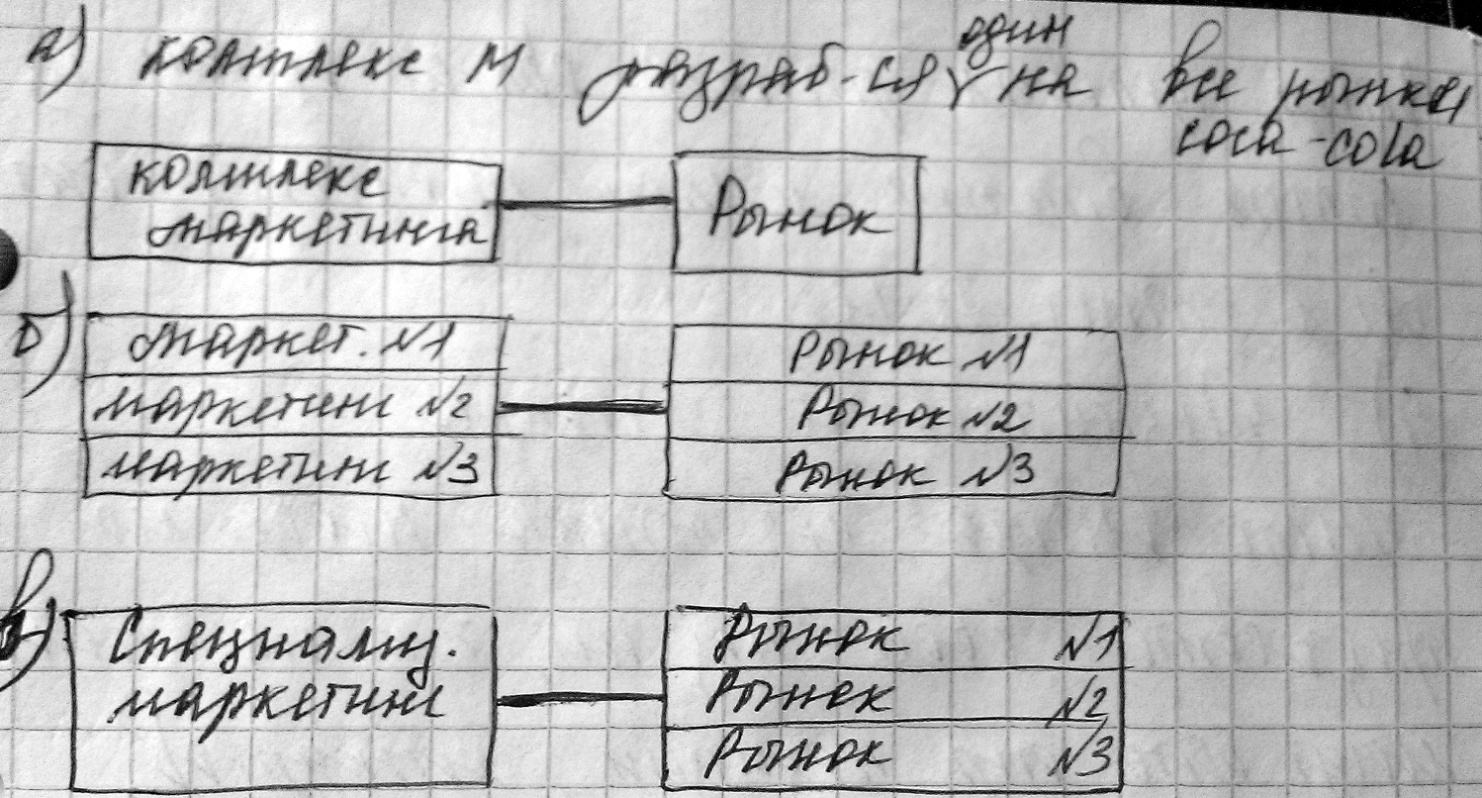 а) комплекс М разраб-ся один на все рынки
coca-cola
комплекс
маркетинга
Рынок
б)
маркет. №1
маркетинг №2
маркетинг №3
Рынок №1
Рынок №2
Рынок №3
в)
Специализ.
маркетинг
Рынок №1
Рынок №2
Рынок №3